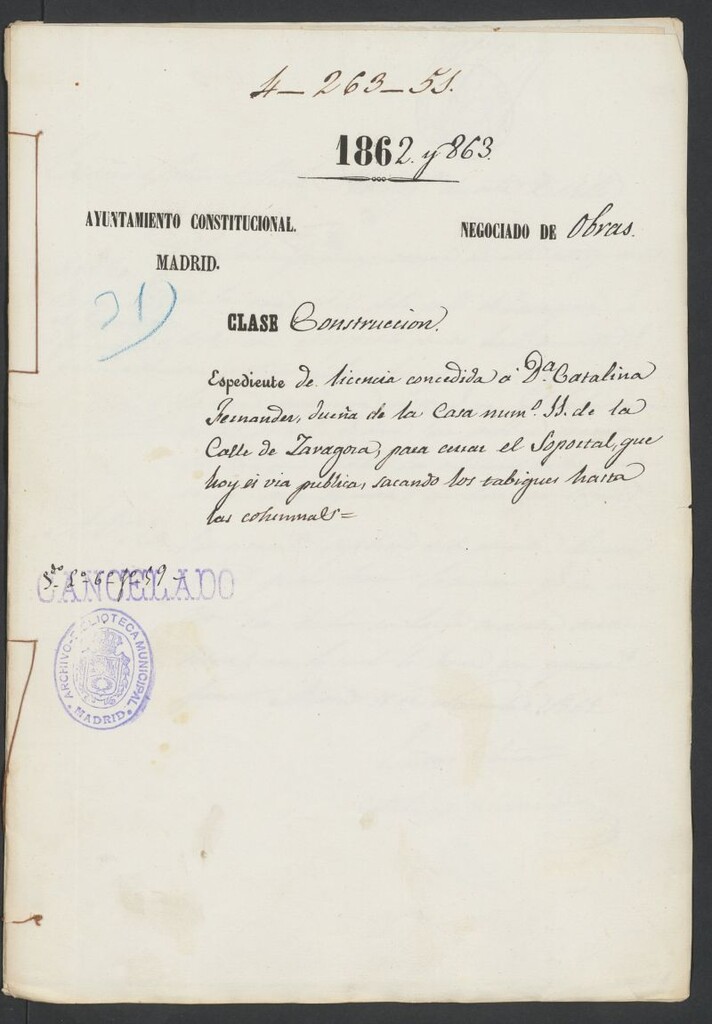 4-263-51.
1862. y 863.
AYUNTAMIENTO CONSTITUCIONAL.
MADRID.
NEGOCIADO DE Obras.
21)
CLASE Construccion.
Espediente de licencia concedida á Da. Catalina
Fernandez, dueña de la Casa numo. 11. de la
Calle de Zaragoza, para cerrar el Soportal, que
hoy es via publica, sacando los tabiques hasta
las columnas=
CANCELADO
ARCHIVO-BIBLIOTECA MUNICIPAL
MADRID